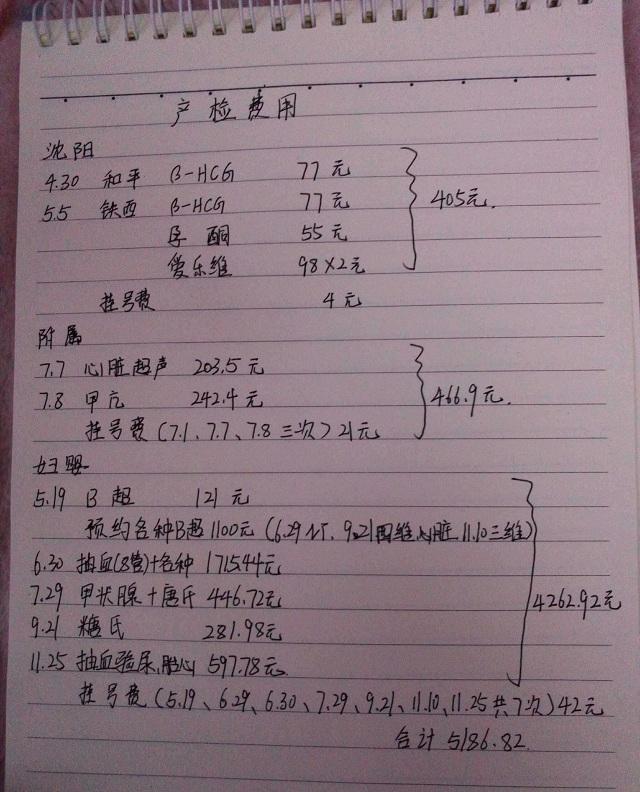 产检费用
沈阳
4.30 和平 β-HCG 77元
5.5 铁西 β-HCG 77元 405元.
孕酮 55元
爱乐维 98×2元
挂号费 4元
附属
7.7 心脏超声 203.5元
7.8 甲亢 242.4元 466.9元.
挂号费(7.1、7.7、7.8三次)21元
妇婴
5.19 B超 121元
预约各种B超1100元(6.29NT、9.21四维,心脏 11.10三维)
6.30 抽血(8管)+各种 1715.44元
7.29 甲状腺+唐氏 446.72元 4262.92元
9.21 糖氏 281.98元
11.25 抽血验尿,胎心 597.78元
挂号费(5.19、6.29、6.30、7.29、9.21、11.10、11.25共7次)42元
合计 5186.82.